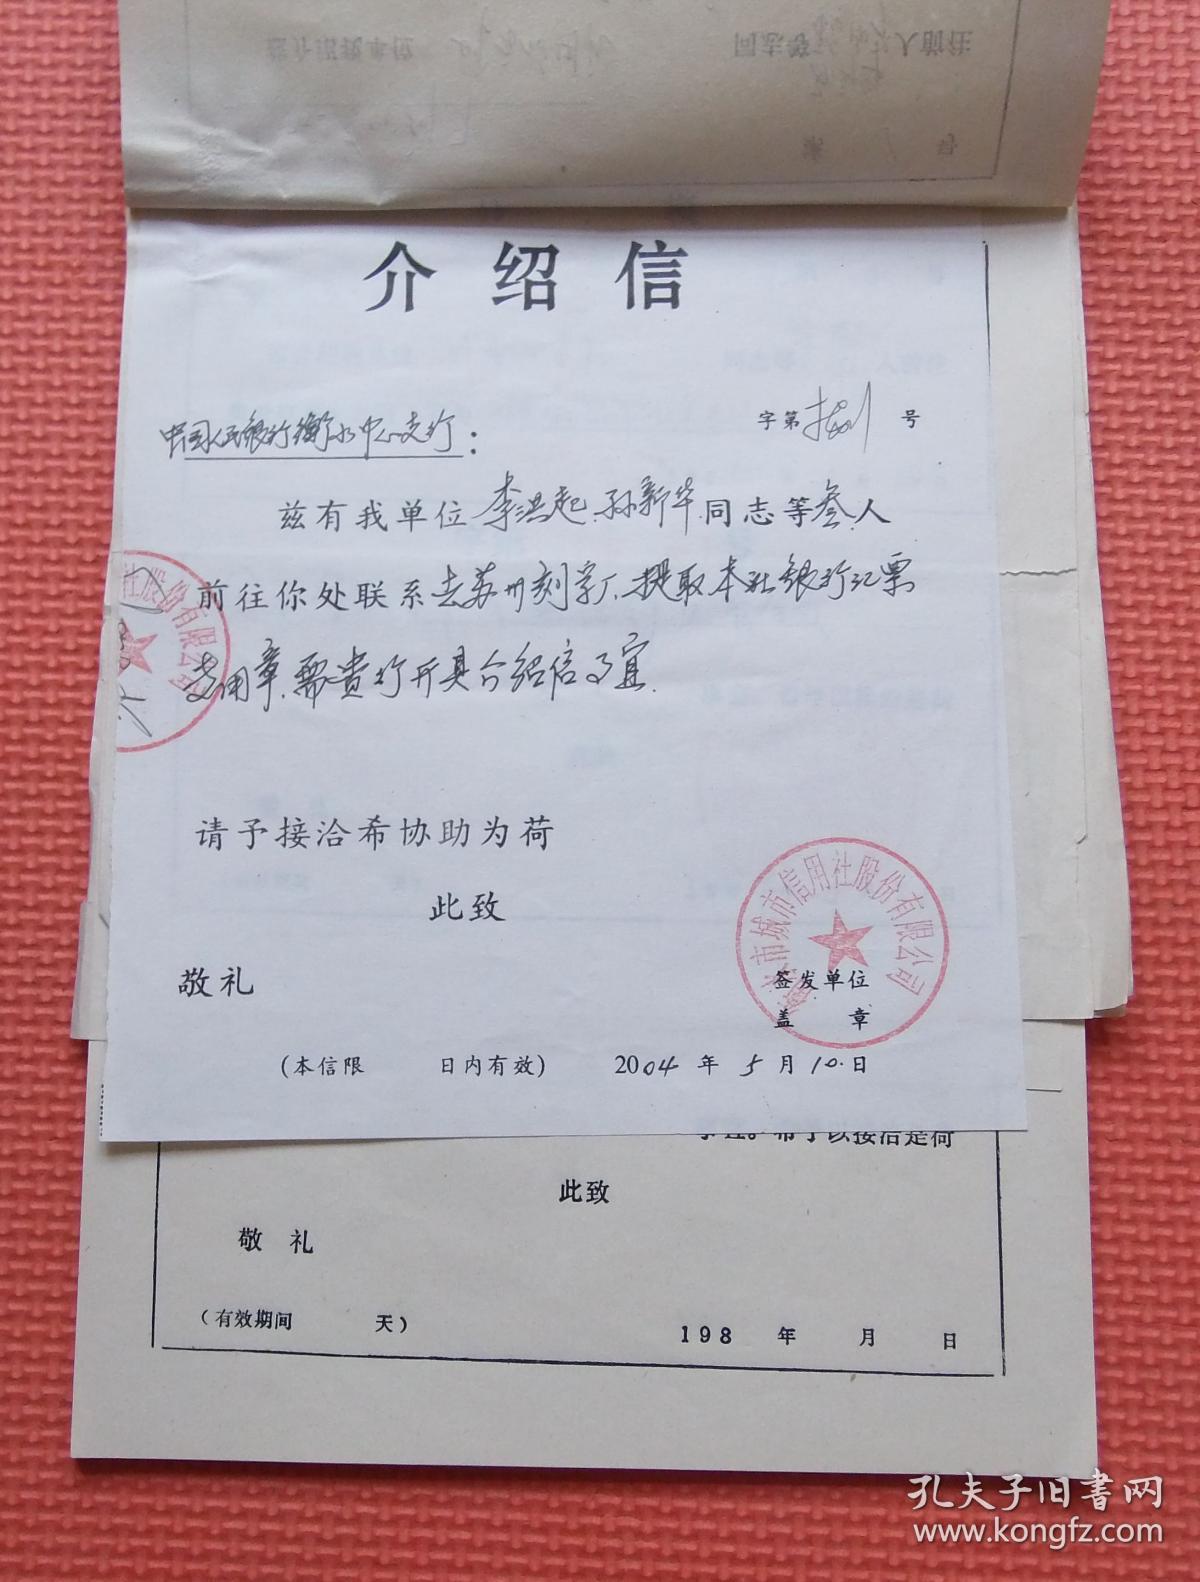 同志等 人前往
介绍信
中国人民银行衡水中心支行：
字第 号
兹有我单位李洪起、孙新华同志等叁人
前往你处联系去苏州刻字厂、提取本社银行汇票
专用章、需贵行开具介绍信事宜.
请予接洽希协助为荷
此致
敬礼
签发单位
盖 章
(本信限 日内有效) 2004年5月10日
衡水市城市信用社股份有限公司
社股份有限公司
希予以接洽是荷
此致
敬 礼
(有效期间 天)
198 年 月 日
孔夫子旧书网
www.kongfz.com